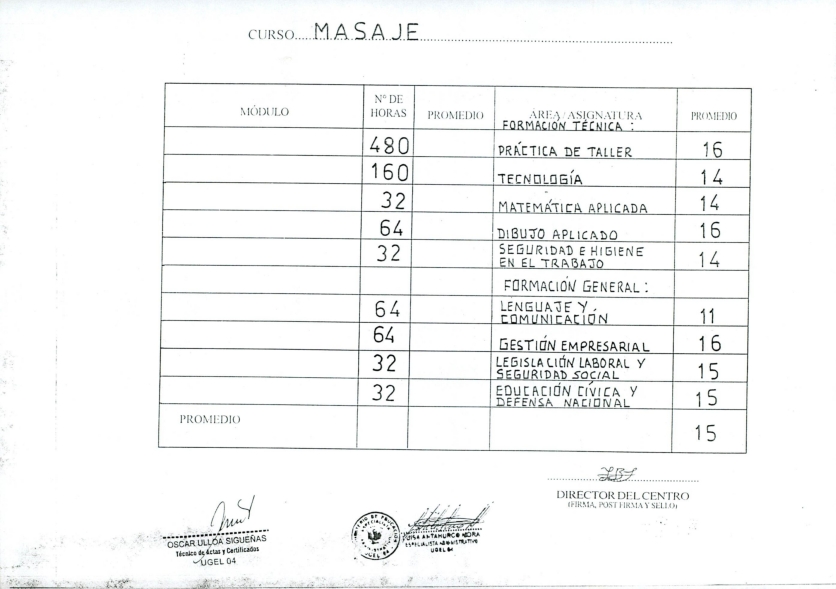 CURSO.... MASAJE
MÓDULO
N° DE HORAS
PROMEDIO
ÁREA / ASIGNATURA
PROMEDIO
FORMACIÓN TÉCNICA :
480 PRÁCTICA DE TALLER 16
160 TECNOLOGÍA 14
32 MATEMÁTICA APLICADA 14
64 DIBUJO APLICADO 16
32 SEGURIDAD E HIGIENE
EN EL TRABAJO 14
FORMACIÓN GENERAL :
64 LENGUAJE Y
COMUNICACIÓN 11
64 GESTIÓN EMPRESARIAL 16
32 LEGISLACIÓN LABORAL Y
SEGURIDAD SOCIAL 15
32 EDUCACIÓN CÍVICA Y
DEFENSA NACIONAL 15
PROMEDIO 15
DIRECTOR DEL CENTRO
(FIRMA, POST FIRMA Y SELLO)
OSCAR ULLOA SIGUEÑAS
Técnico de Actas y Certificados
UGEL 04
ESPECIALISTA ADMINISTRATIVO
UGEL 04